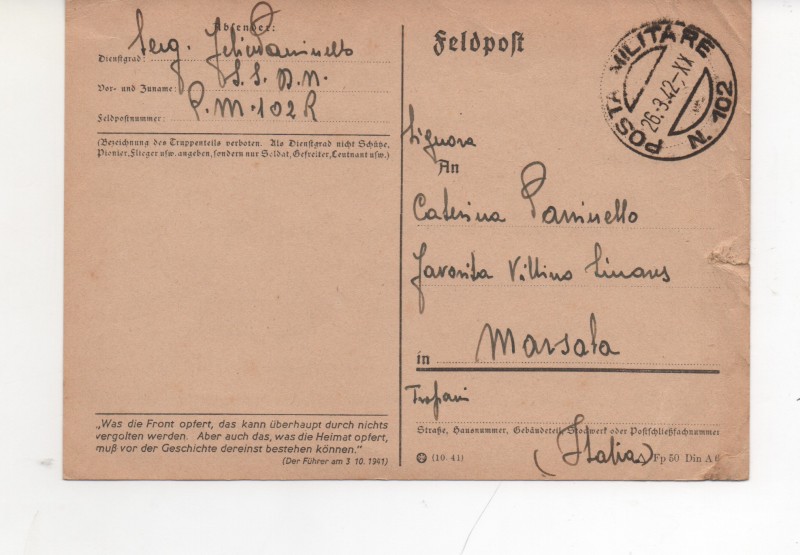 Absender:
Dienstgrad: Serg.
S.S. D.N.
Vor- und Zuname:
P.M. 102 R
Feldpostnummer:
(Bezeichnung des Truppenteils verboten. Als Dienstgrad nicht Schütze,
Pionier, Flieger usw. angeben, sondern nur Soldat, Gefreiter, Leutnant usw.)
„Was die Front opfert, das kann überhaupt durch nichts
vergolten werden. Aber auch das, was die Heimat opfert,
muß vor der Geschichte dereinst bestehen können.“
(Der Führer am 3 10. 1941)
Feldpost
POSTA MILITARE
26.3.42.-XX
N. 102
Signora
An
Caterina
Favorita Villino
in Marsala
Trapani
Straße, Hausnummer, Gebäudeteil, Stockwerk oder Postschließfachnummer
(Italia)
(10. 41)
Fp 50 Din A 6